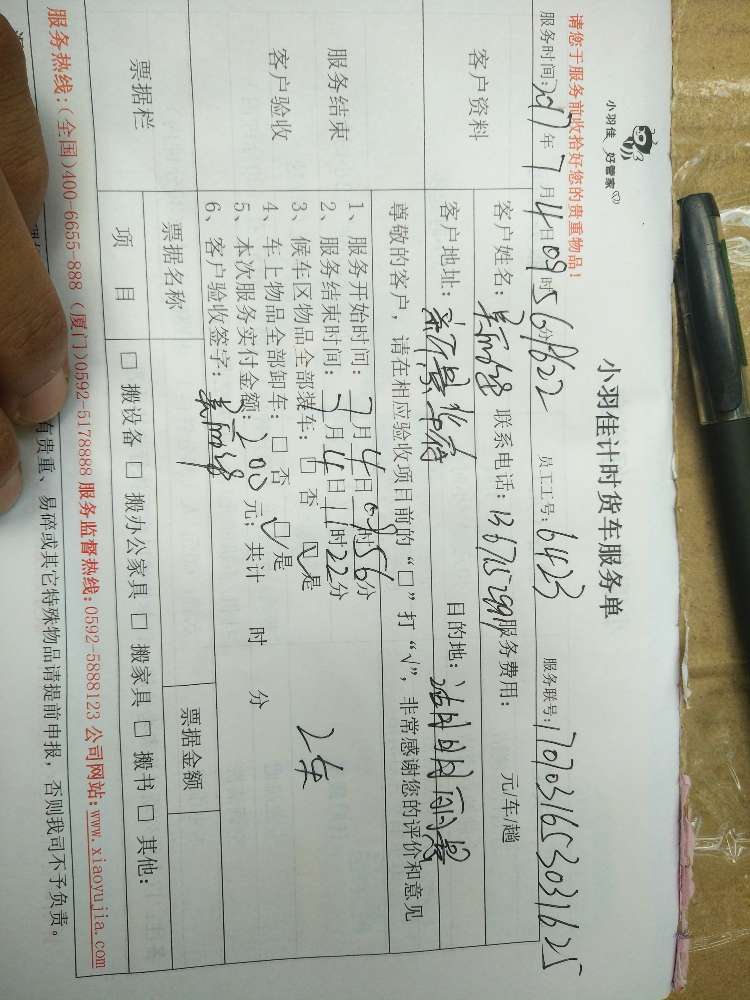 小羽佳 好管家
小羽佳计时货车服务单
请您于服务前收拾好您的贵重物品！
服务时间:2017年7月4日09时56分 员工工号:6423 服务联号:1707031653031625
客户资料
客户姓名: 联系电话: 服务费用: 元/车/趟
客户地址: 目的地:
尊敬的客户，请在相应验收项目前的“□”打“√”，非常感谢您的评价和意见
服务结束
客户验收
1、服务开始时间:7月4日09时56分
2、服务结束时间:7月4日11时22分
3、候车区物品全部装车: □ 否 ☑ 是
4、车上物品全部卸车: □ 否 ☑ 是
5、本次服务实付金额:200元; 共计 时 分
6、客户验收签字:
票据栏
票据名称 票据金额
项 目 □ 搬设备 □ 搬办公家具 □ 搬家具 □ 搬书 □ 其他:
有贵重、易碎或其它特殊物品请提前申报，否则我司不予负责。
服务热线:(全国)400-6655-888 (厦门)0592-5178888 服务监督热线:0592-5888123 公司网站:www.xiaoyujia.com